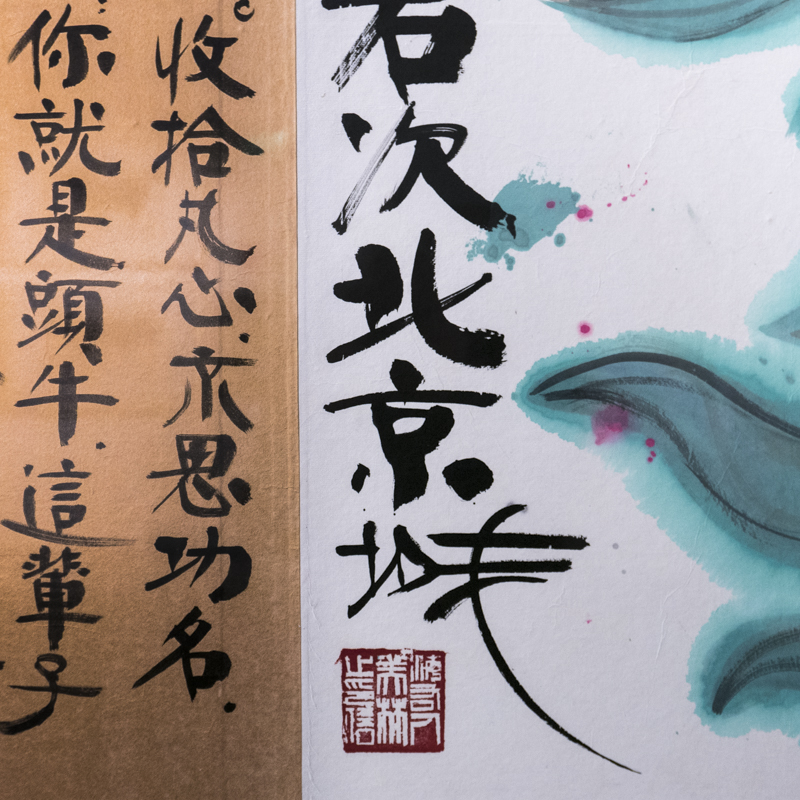 次北京城
收拾凡心.亦思功名.
你就是頭牛.這輩子